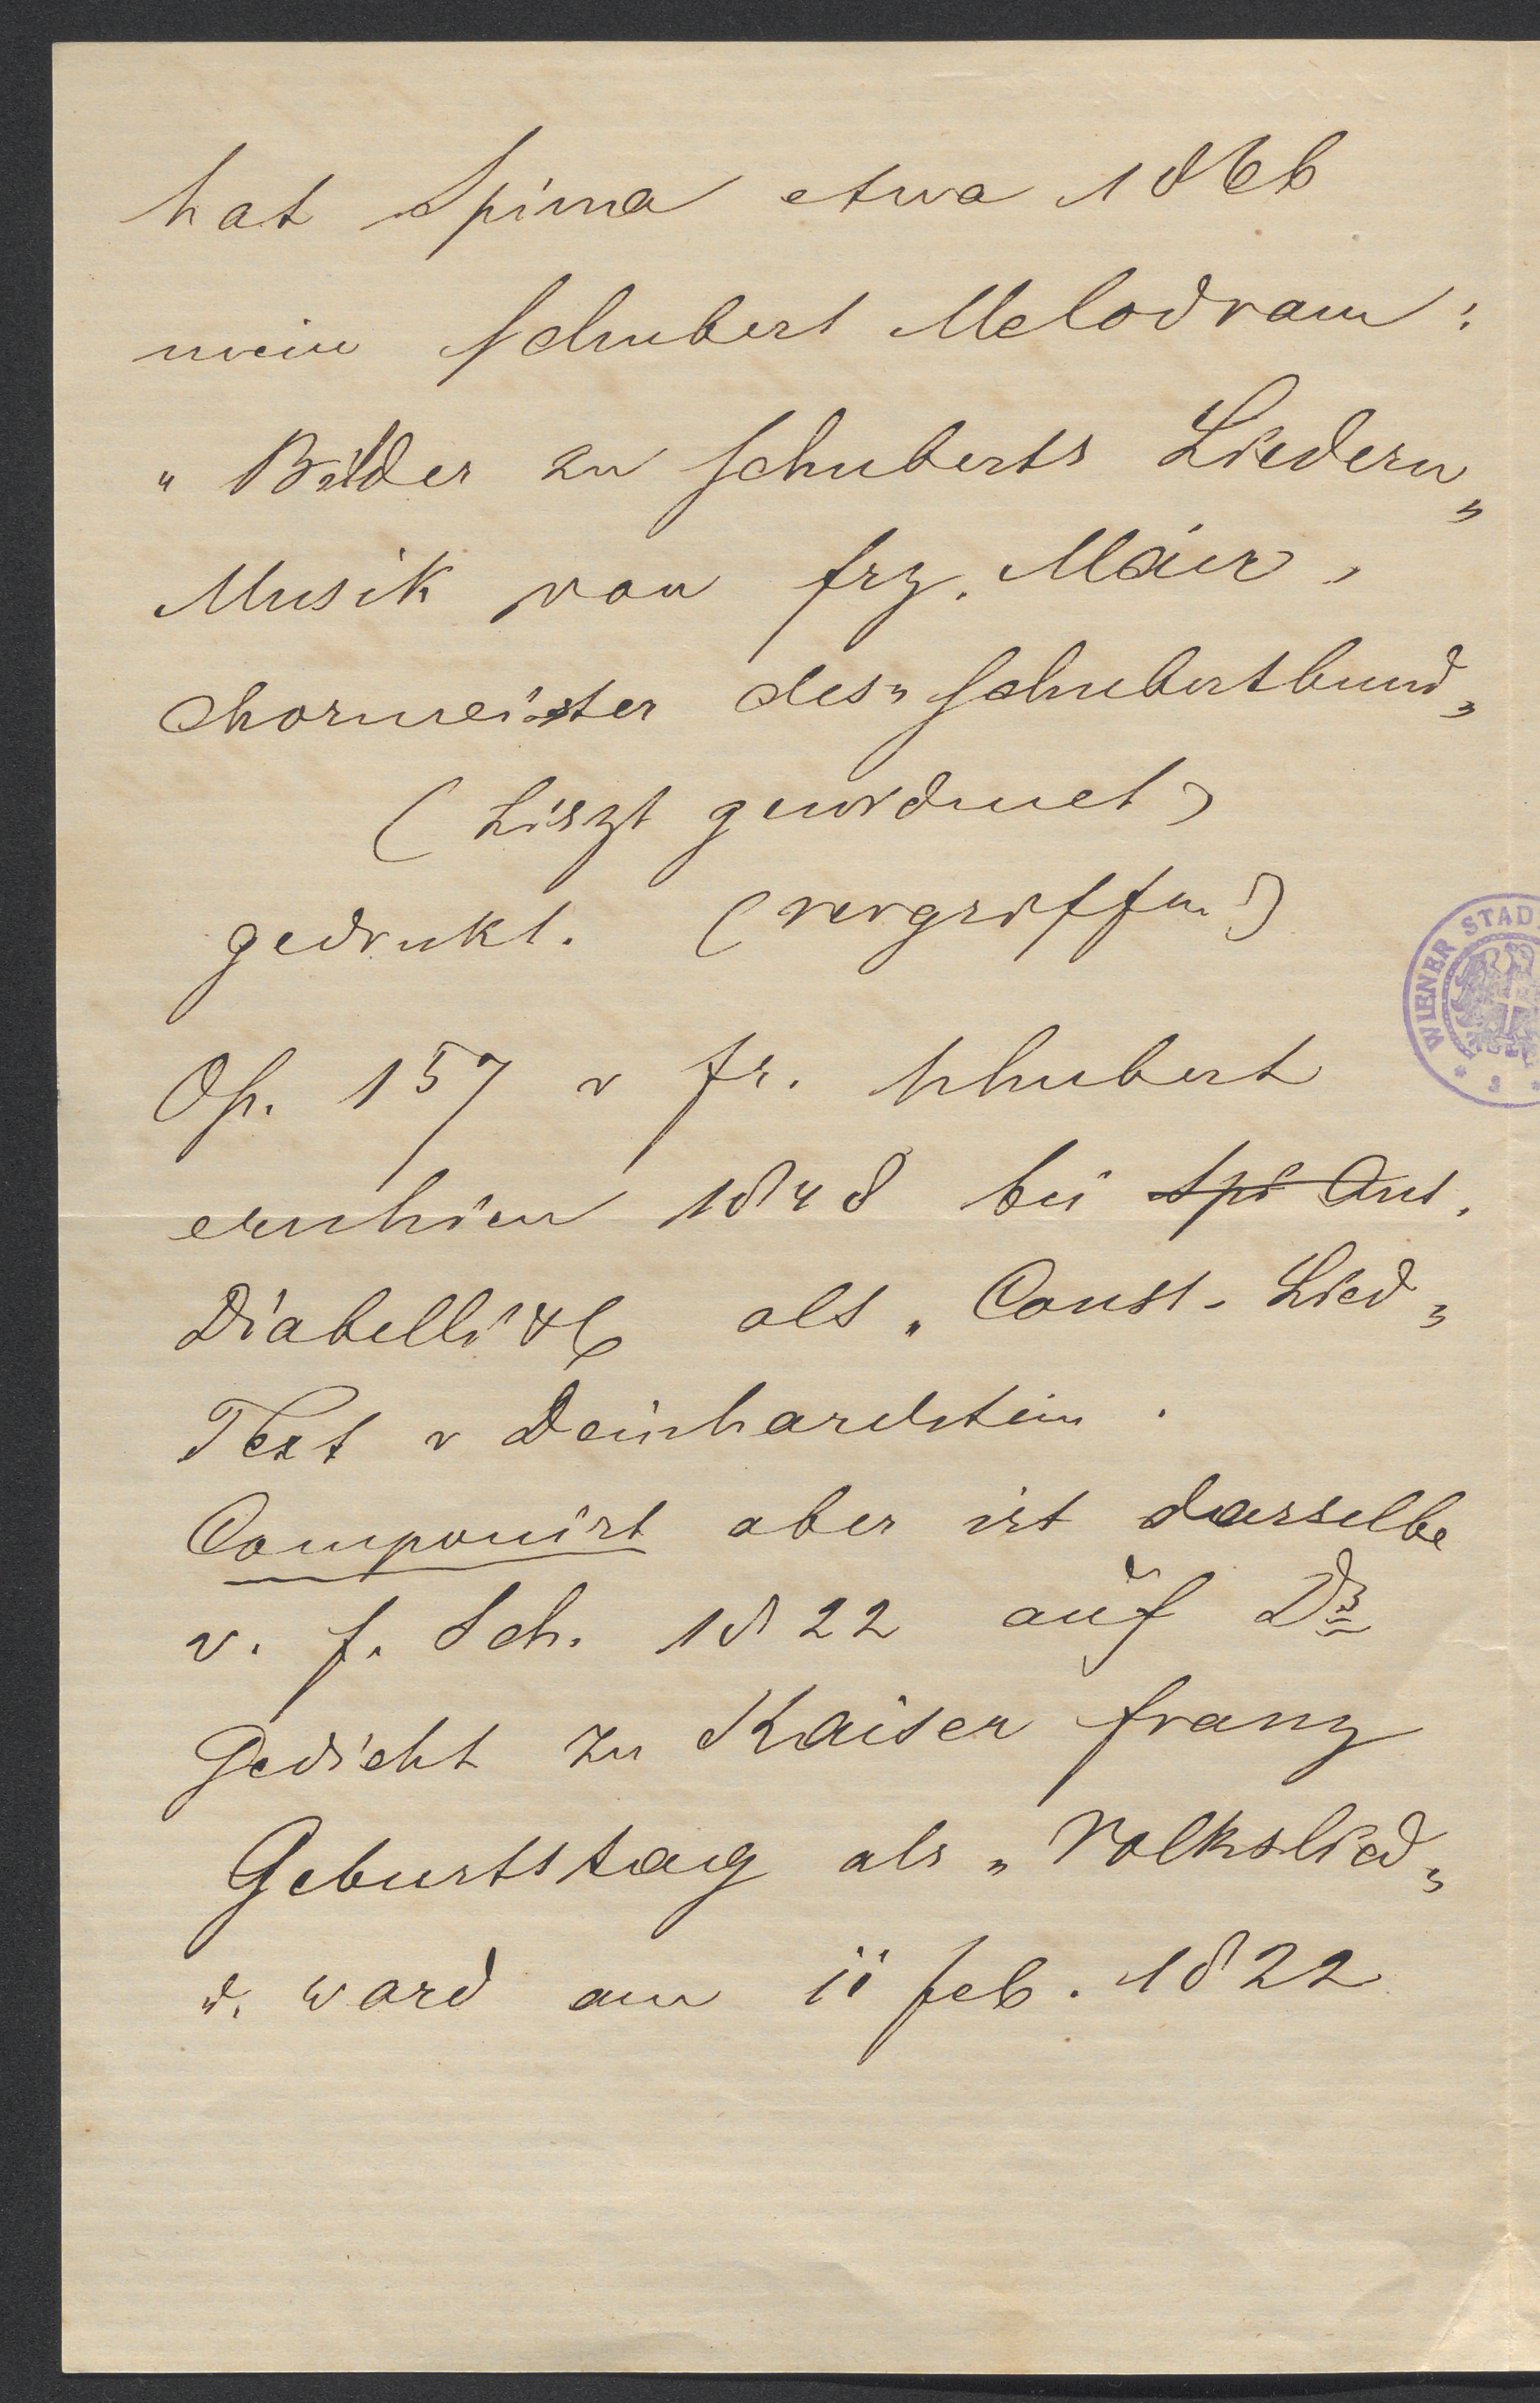 hat Spina etwa 1866
mein Schubert Melodram:
"Bilder zu Schuberts Liedern"
Musik von Frz. Mair,
Chormeister des "Schubertbund"
(Liszt gewidmet)
gedrukt. (vergriffen)
Op. 157 v Fr. Schubert
erschien 1848 bei Spi Ant.
Diabelli & C als "Const. Lied"
Text v Deinhardstein.
Componirt aber ist dasselbe
v. F. Sch. 1822 auf Ds
Gedicht zu Kaiser Franz
Geburtstag als "Volkslied"
u. ward am 11 Feb. 1822
WIENER STAD